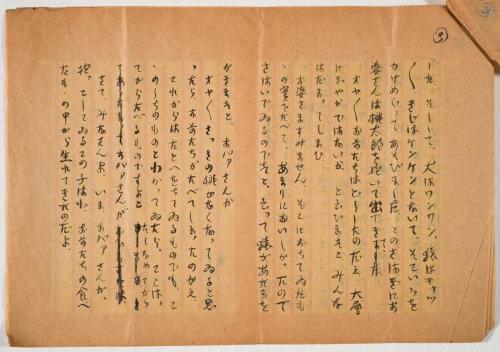 した。そして、犬はワンワン、猿はキャッ
〱きじはケンケンとないて、そこいらを
かけめぐってあそびました。このさはぎにお
婆さんは桃太郎を抱いて出てきました
オヤ〱お前たちはどうしたのだえ 大層
にぎやかではないか、と云ひますと みんな
はだまってしまひ
お婆さますみません。そこにおちてゐたも
ゝの実をたべて、あまりにおいしかったので
さはいでゐるのですと、云って猿があたまを
かきますと、おバァさんが
オヤ〱さっきの桃がなくなってゐると思
ったら、お前たちがたべてしまったのかえ
これからはたとへおちてゐるものでも、こ
ゝのうちのものとわかってゐたら、ことは
ってからたべるものですよと たしなめてから
おバァさんが
さて、みなさんよ、いま、おバァさんが、
抱っこしてゐるこの子はね、お前たちの食べ
たもゝの中から生れてきたのだよ。